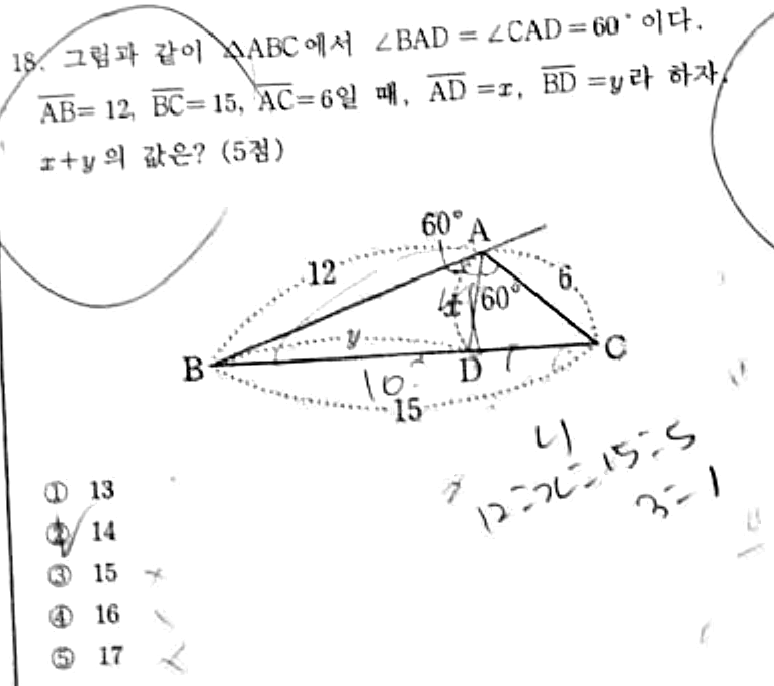 18. 그림과 같이 △ABC에서 ∠BAD = ∠CAD = 60° 이다.
AB= 12, BC= 15, AC=6일 때, AD =x, BD =y라 하자.
x+y의 값은? (5점)
60° A
12
6
60°
y
B
D
C
10
15
① 13
② 14
③ 15
④ 16
⑤ 17
4
12:x=15:5
3:1